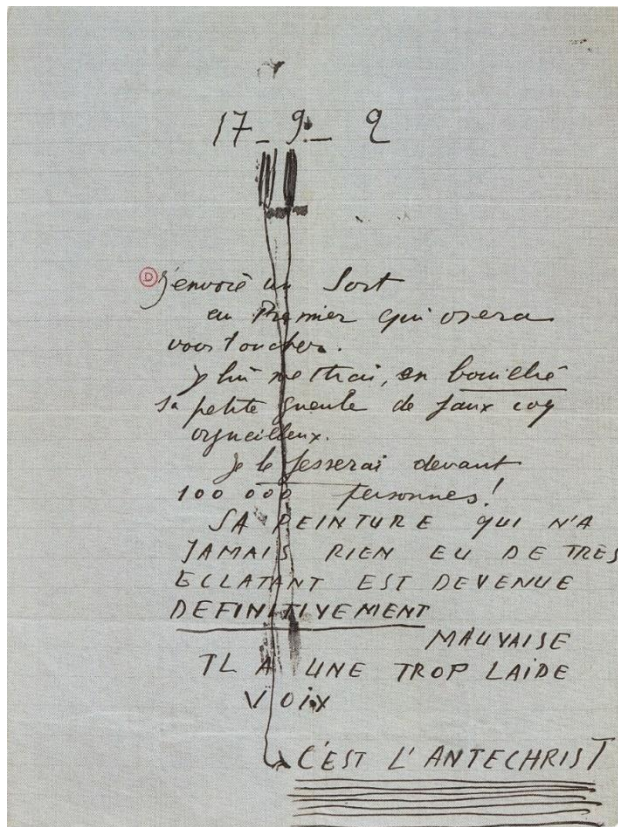 17 _ 9 _ 2
D
J'envoie un Sort
au Premier qui osera
vous toucher.
Je lui mettrai, en bouillie
sa petite gueule de faux coq
orgueilleux.
Je le fesserai devant
100 000 personnes!
SA PEINTURE QUI N'A
JAMAIS RIEN EU DE TRES
ECLATANT EST DEVENUE
DEFINITIVEMENT
MAUVAISE
IL A UNE TROP LAIDE
VOIX
C'EST L'ANTECHRIST